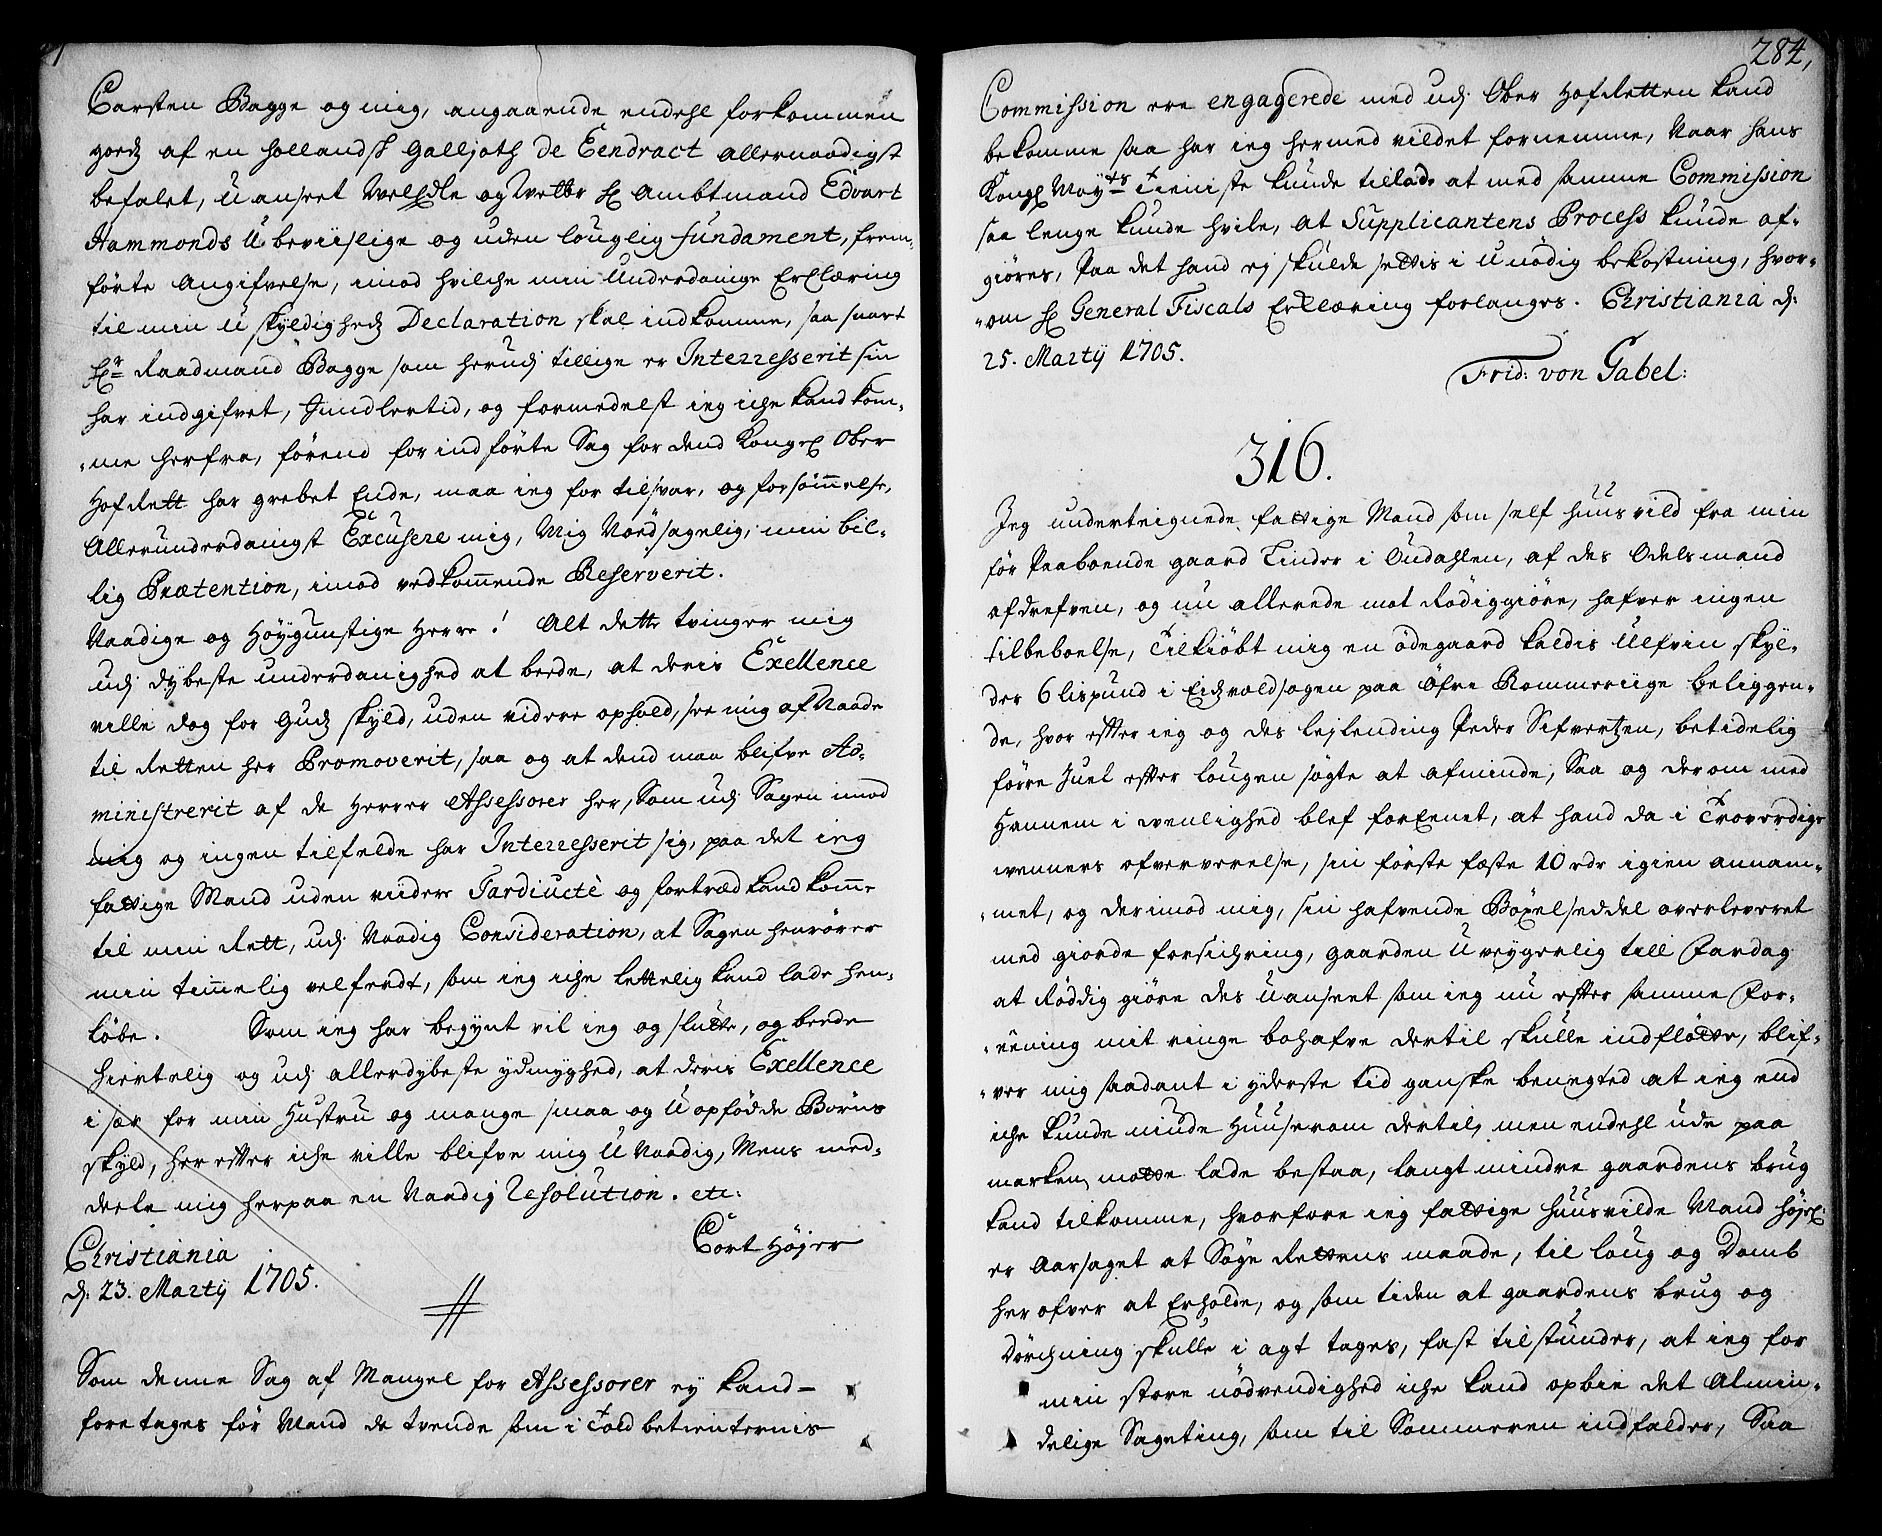 Carsten Bagge og mig, angaaende endehl forkommen
goedz af en hollandsk Galljoth de Eendract allernaadigst
befalet, uanseet Welædle og Welbr Hr Ambtmand Edvart
Hammonds U-beviislige og uden louglig fundament, frem-
förte Angifvelse, imod hvilche min Underdanige Erklæring
til min Uskyldighedz Declaration skal indkomme, saa snart
Hr Raadmand Bagge som herudj tillige er Interresserit sin
har indgifvet, Imidlertid, og formedelst ieg iche kand kom-
me herfra, förend forindförte Sag for dend Kongel Ober
Hof Rett har grebet Ende, maa ieg for tilsvar, og forsömmelse,
Allerunderdanigst Excusere mig, Mig Nördsagelig, min bil-
lig Prætention, imod vedkommende Reserverit.
Naadige og Höygunstige Herre! Alt dette tvinger mig
udj dybeste underdanighed at bede, at deris Exellence
ville dog for Gudz skyld, uden videre ophold, see mig af Naade
til Retten her Promoverit, saa og at dend maa blifve Ad-
ministrerit af de Herrer Assessorer her, som udj Sagen imod
mig og ingen tilfelde har Interresserit sig, paa det ieg
fattige Mand uden viidere Tardiuctè og fortræd kand komme
til min Rett, udj Naadig Consideration, at Sagen henrörer
min timmelig velferdt, som ieg iche lettelig kand lade hen-
löbe. Som ieg har begynt vil ieg og slutte, og beede
hiertelig og udj allerdybeste ydmyghed, at deris Exellence
i sær for min Hustru og mange smaa og Uopfödde Börns
skyld, her effter iche ville blifve mig UNaadig, Mens med-
deele mig herpaa en Naadig Resolution. etc:
Cort Höjer
Christiania
d: 23. Martij 1705.
Som denne Sag af Mangel for Assessorer ey kand
foretages för Mand de tvende som i Told betienternis
284,
Commission ere engagerede med udj Ober Hof Retten kand
bekomme saa har ieg hermed vildet fornemme, Naar hans
Kongl Mayts Tieniste kunde tillade at med samme Commission
saa lenge kunde hvile, at Supplicantens Process kunde af-
giöres, Paa det hand ej skulde settis i Unödig bekostning, hvor-
om Hr General Fiscals Erklæring forlanges. Christiania d:
25. Martij 1705.
Frid: von Gabel:
316.
Jeg underteignede fattige Mand som self huusvild fra min
för Paaboende gaard Linder i Oudahlen, af des Odelsmand
afdrefven, og nu allerede mot Rödiggiöre, hafver ingen
tilbeboelse, Tilkiöbt mig en ödegaard kaldis Ulfvin skyl-
der 6 lispund i Eidzvoldsogen paa Öfre Rommeriige beliggen-
de, hvor effter ieg og des lejlending Peder Sifvertzen, betidelig
förre Juel effter lougen sögte at afminde, Saa og derom med
Hannem i wenlighed blef foreenet, at hand da i Troverdige
wenners ofververelse, sin förste feste 10 rdr igien annam-
met, og derimod mig, sin hafvende Böxelseddel overleveret
med giorde forsichring, gaarden Uveygerlig till Fardag
at Röddig giöre des Uanseet som ieg nu effter samme For-
eening mit ringe bohafve dertil skulle indflötte, blif-
ver mig saadant i yderste tid ganske benegted at ieg end
iche kunde niude Huuserom dertil, men endehl ude paa
marken, motte lade bestaa, langt mindre gaardens brug
kand tilkomme, hvorfore ieg fattige huusvilde Mand höjel
er Aarsaget at Söge Rettens maade, til loug og Domb
her ofver at Erholde, og som tiden at gaardens brug og
dörchning skulle i agt tages, fast tilstunder, at ieg for
min store nödvendighed iche kand opbie det Almin-
delige Sageting, som til Sommeren indfalder, Saa